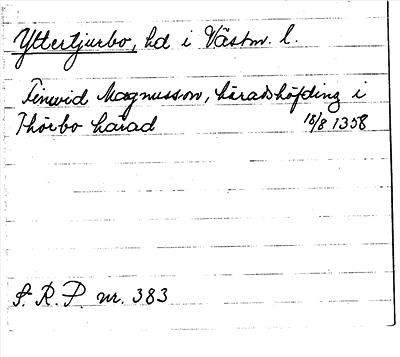 Yttertjurbo, hd i Västm. l.
Finvid Magnusson, häradshöfding i
Thörbo härad 18/8 1358
S. R. P. nr. 383